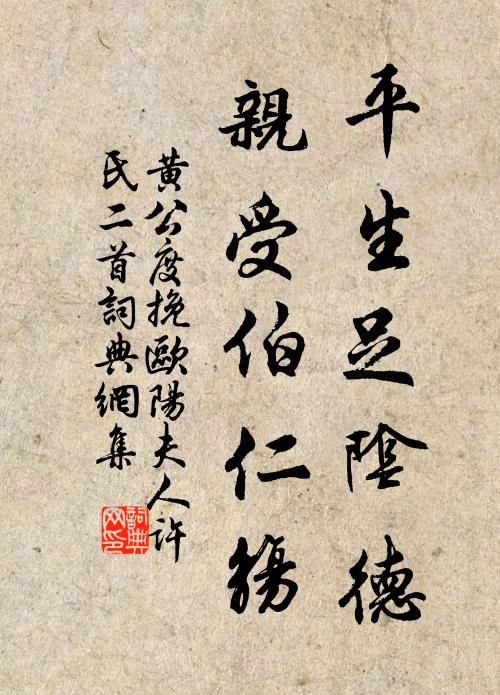 平生足陰德
親受伯仁觴
黃公度挽歐陽夫人許
氏二首詞典網集
詞典
网印